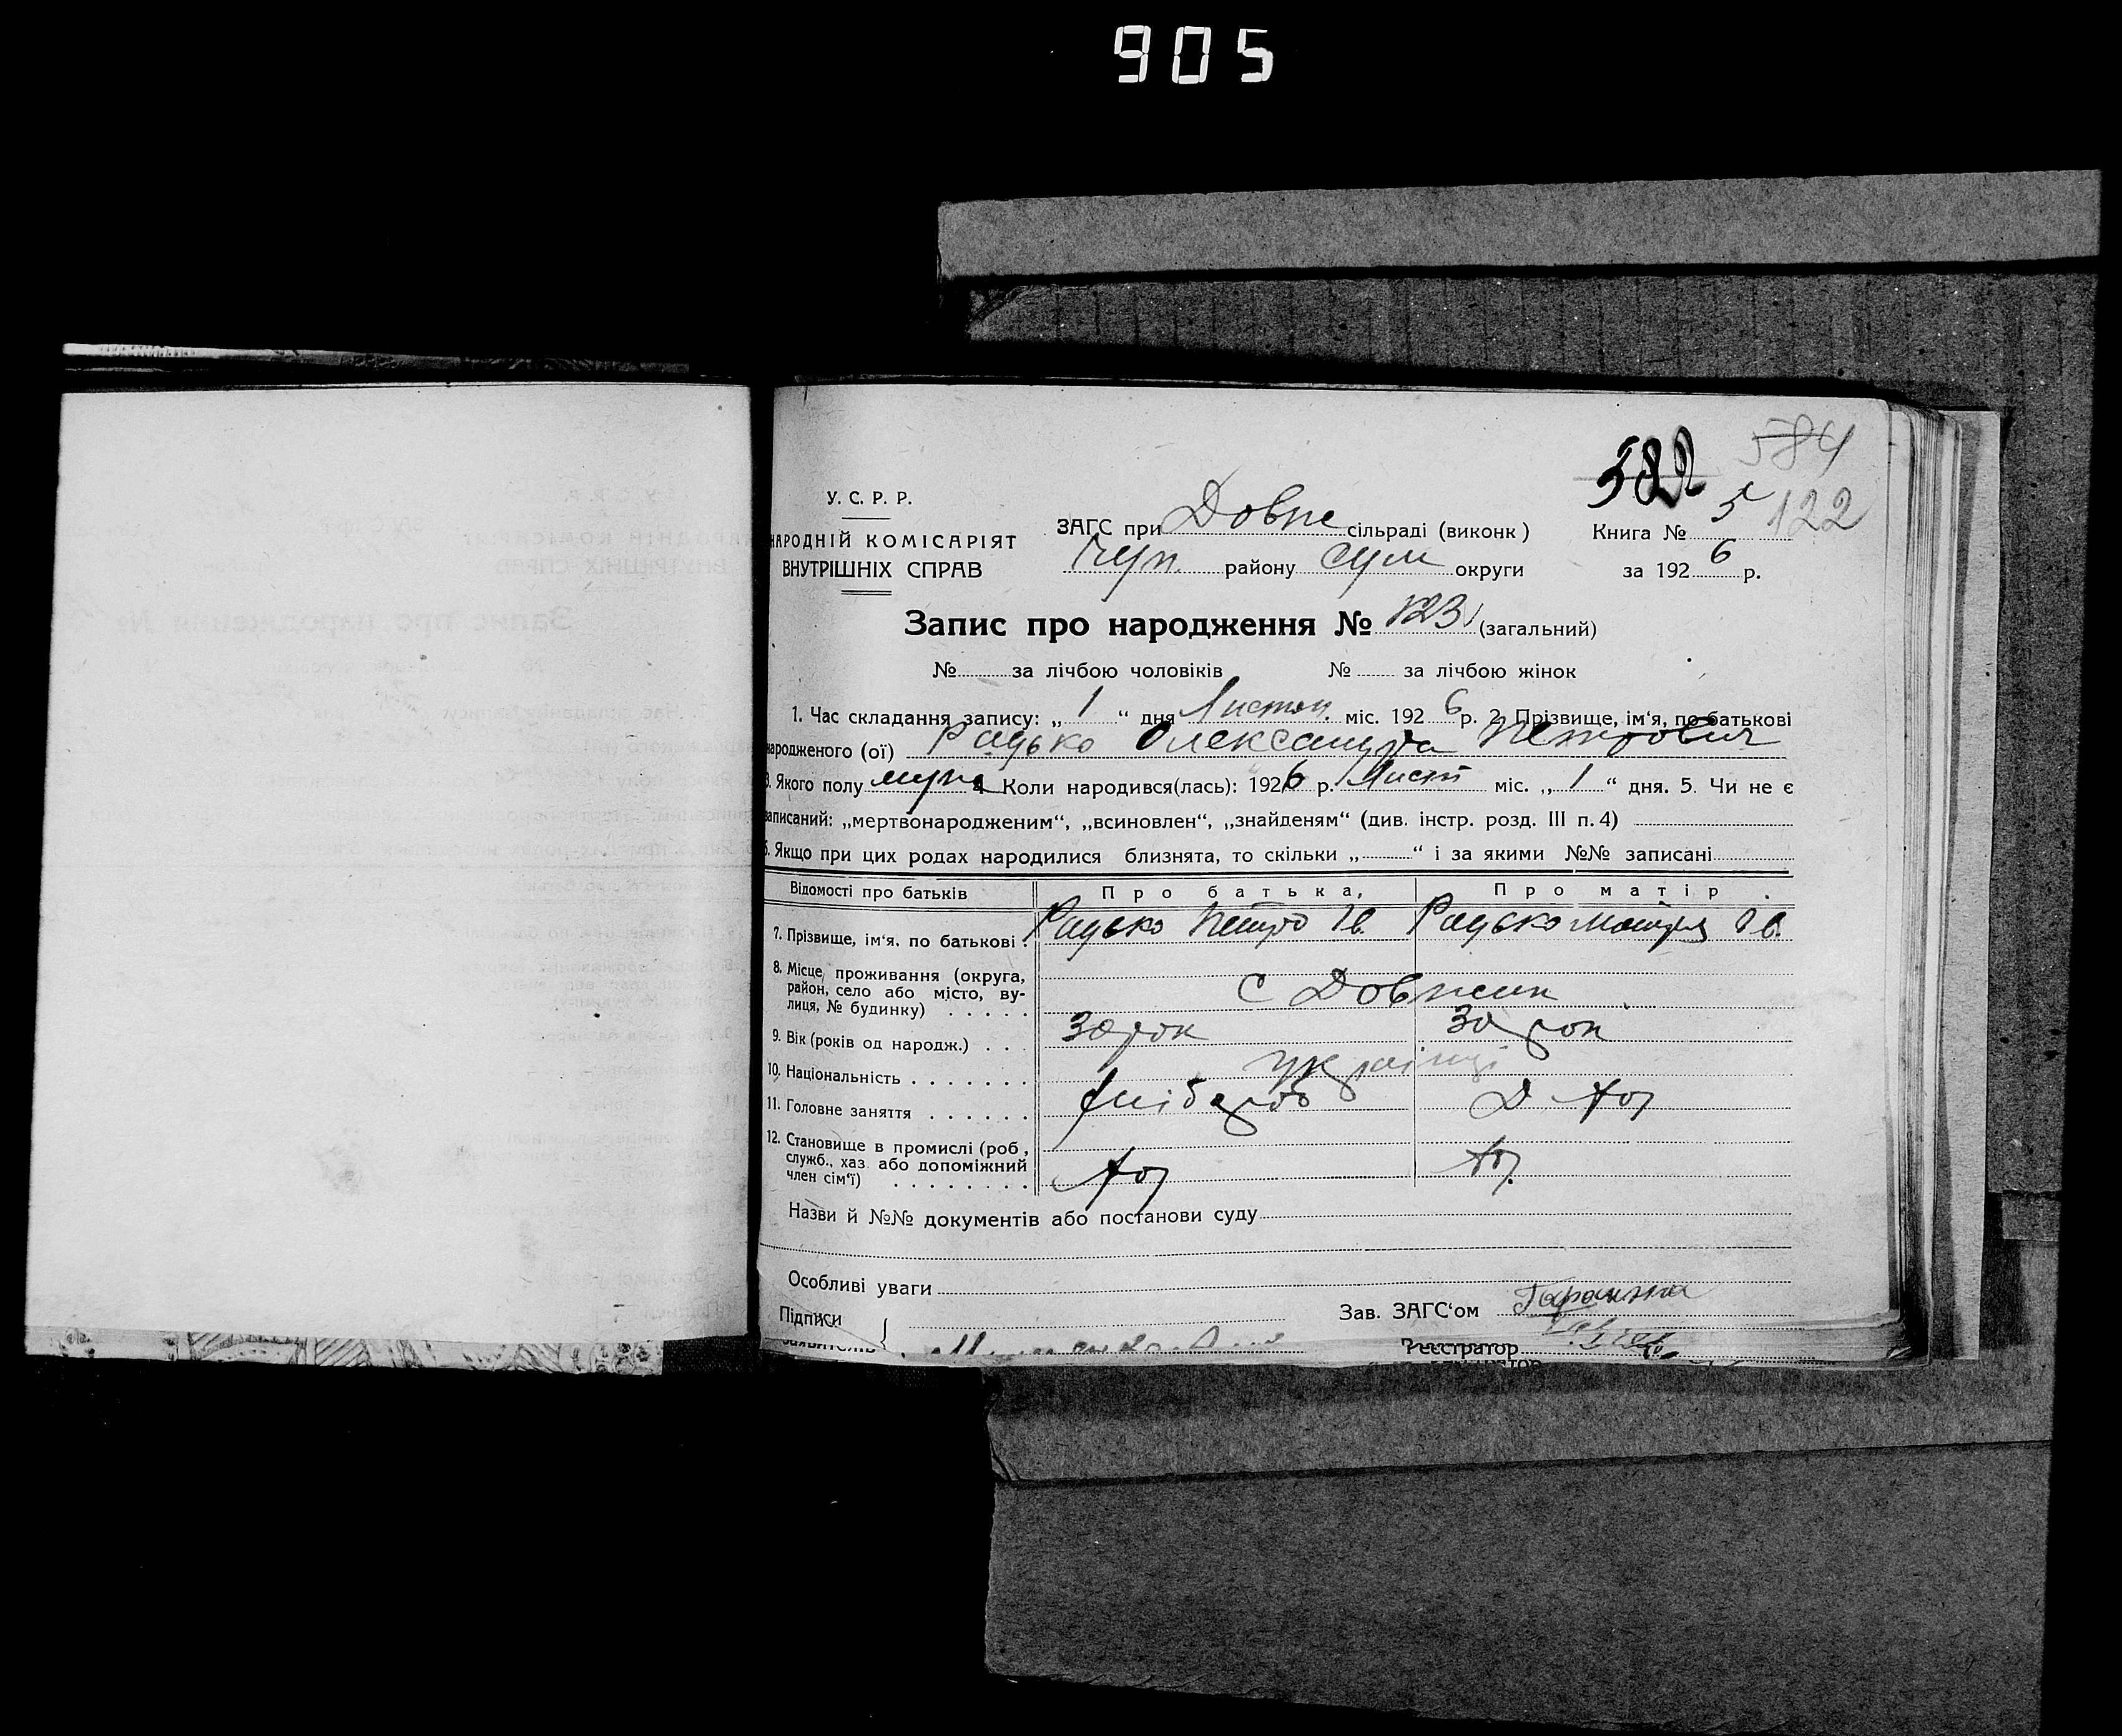 905
582 584
У. С. Р. Р.
НАРОДНІЙ КОМІСАРІЯТ
ВНУТРІШНІХ СПРАВ
ЗАГС при Довж сільраді (виконк) Книга № 5 122
Чуп. району Сум округи за 1926 р.
Запис про народження № 123 (загальний)
№ за лічбою чоловіків № за лічбою жінок
1. Час складання запису: „ 1 “ дня Листоп. міс. 1926 р. 2. Прізвище, ім‘я, по батькові
народженого (ої) Радько Олександра Петрович
3. Якого полу муж 4 Коли народився(лась): 1926 р. Лист міс. „ 1 “ дня. 5. Чи не є
записаний: „мертвонародженим“, „всиновлен“, „знайденям“ (див. інстр. розд. III п. 4)
6. Якщо при цих родах народилися близнята, то скільки „ “ і за якими №№ записані
Відомості про батьків Про батька, Про матір.
7. Прізвище, ім‘я, по батькові. Радько Петро Ів. Радько Ів.
8. Місце проживання (округа,
район, село або місто, ву-
лиця, № будинку) . . . . . с Довжик
9. Вік (років од народж.) . . . 30 рок 30 рок
10. Національність . . . . . . . українці
11. Головне заняття . . . . . . хлібороб Д.
12. Становище в промислі (роб,
служб., хаз. або допоміжний
член сім‘ї) . . . . . . . .
Назви й №№ документів або постанови суду
Особливі уваги
Підписи Зав. ЗАГС‘ом
заявителів Реєстратор